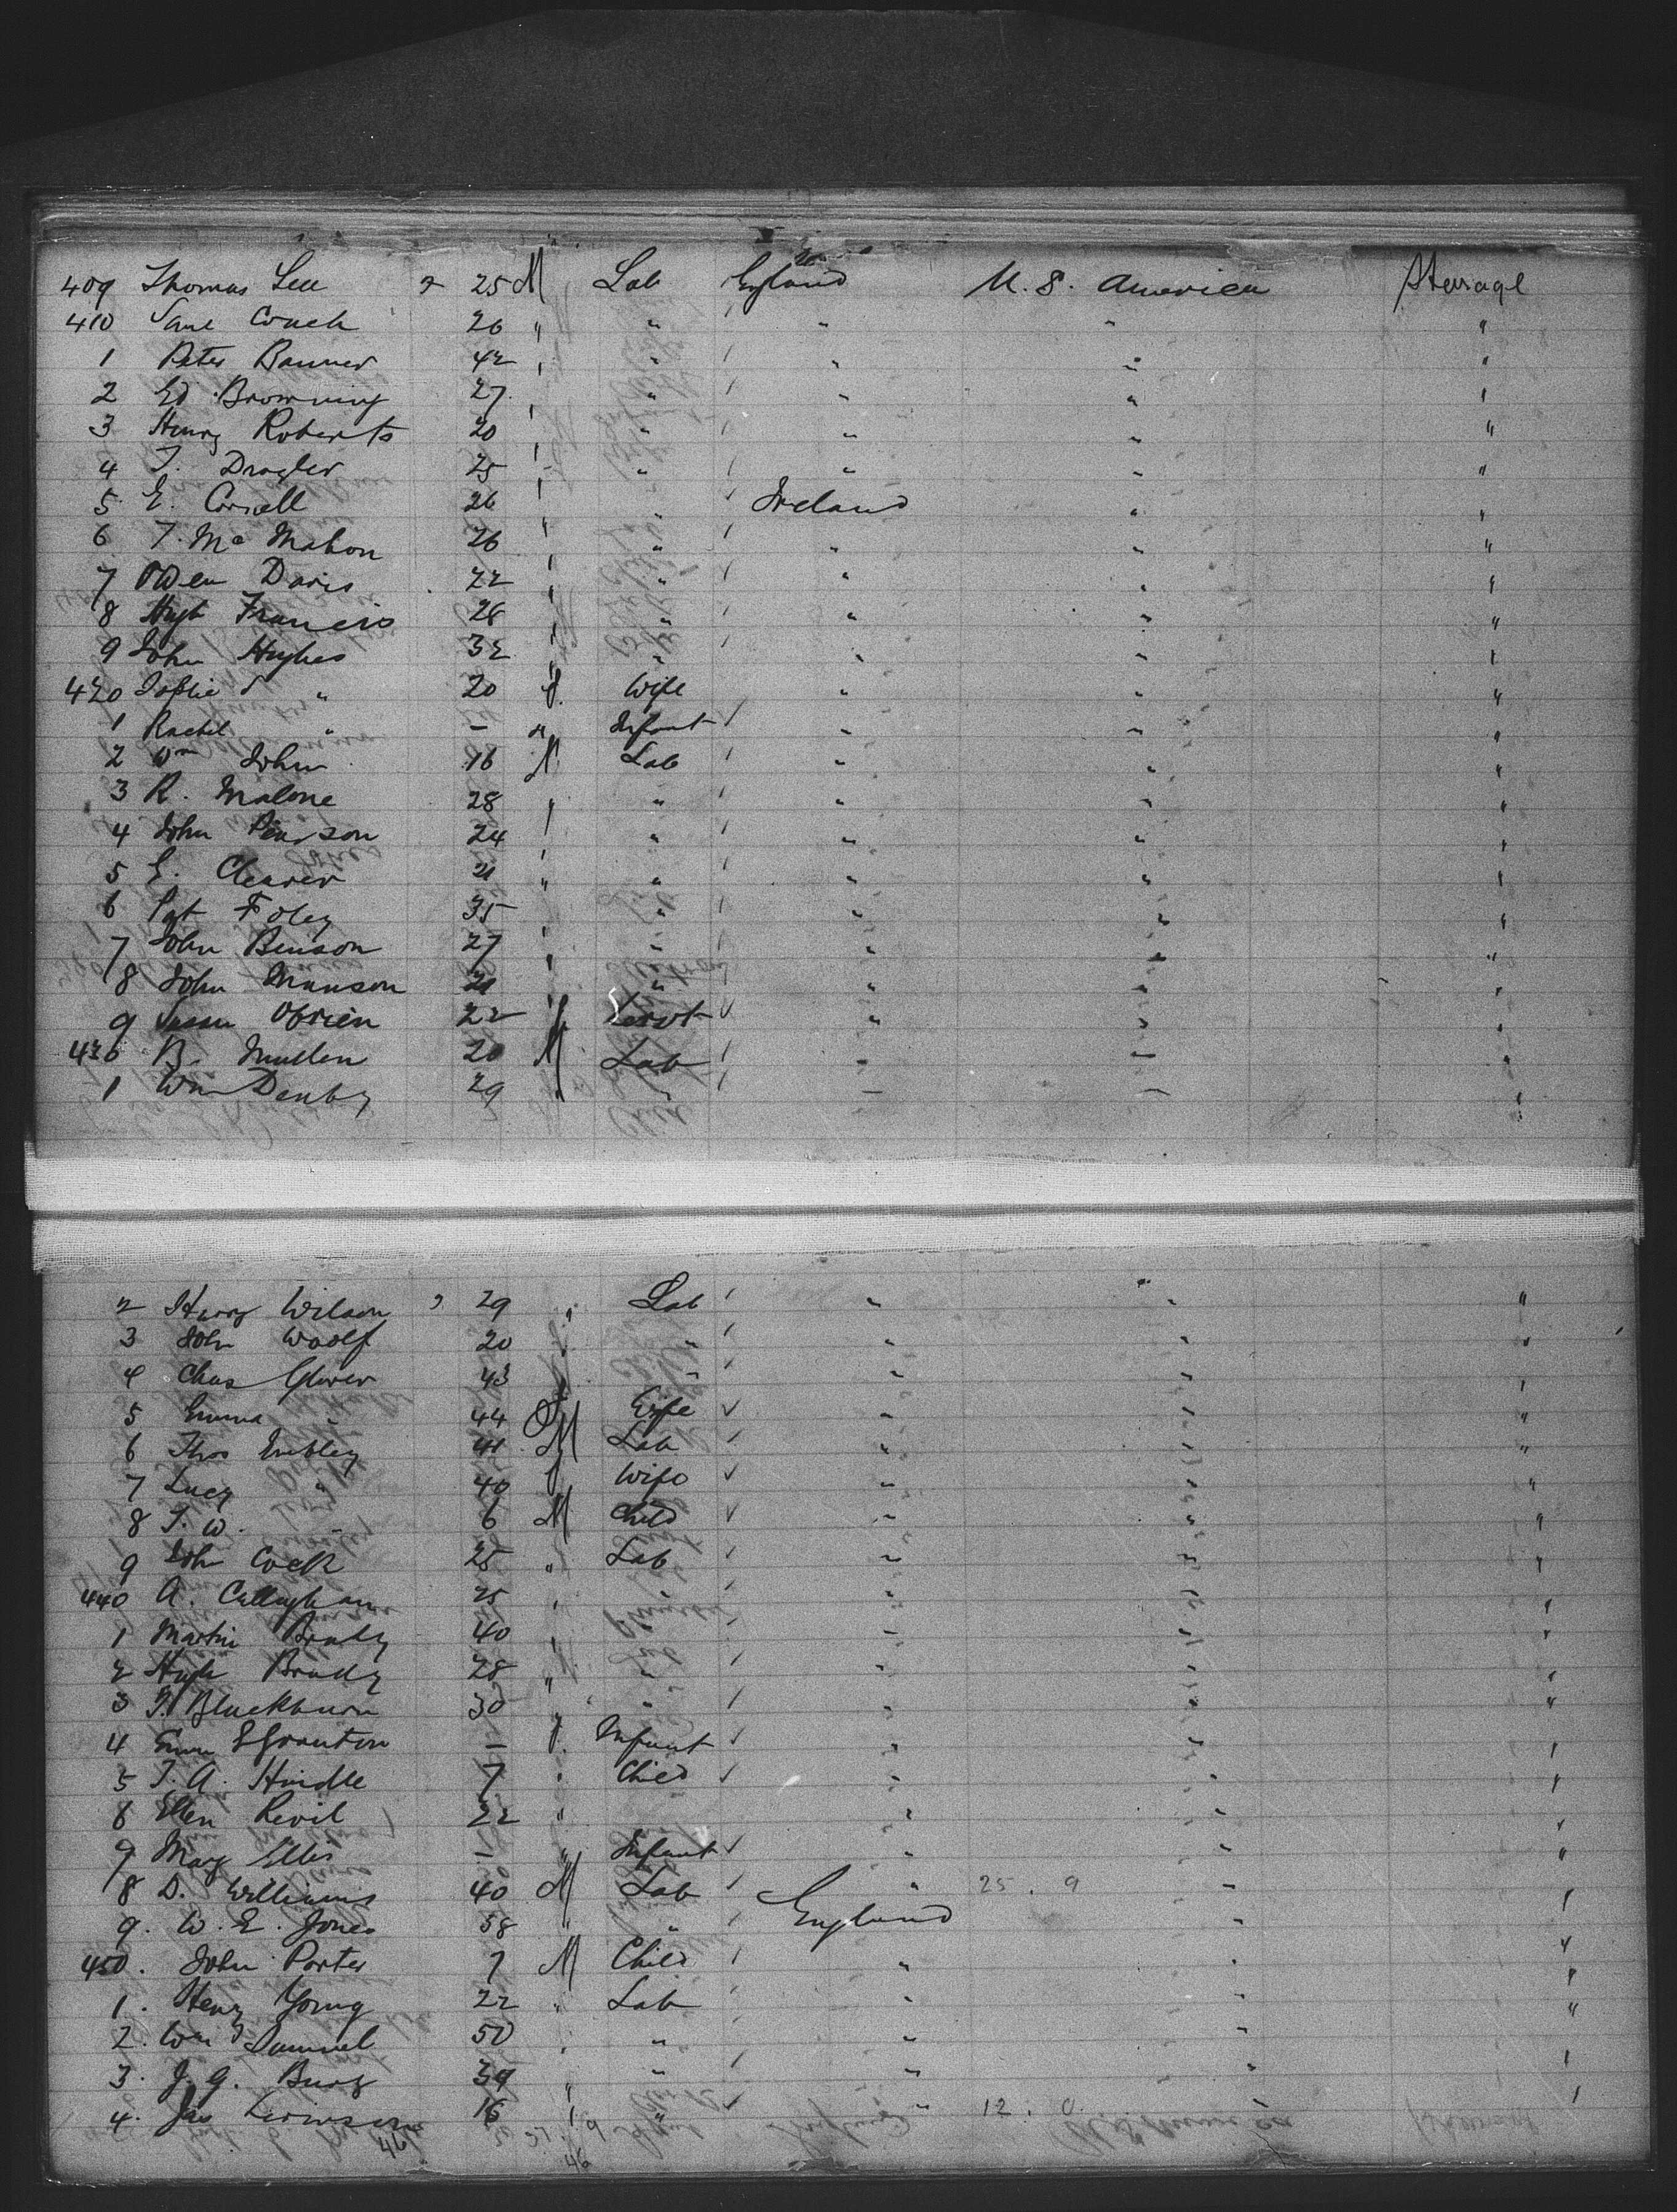 409 Thomas Lee 25 M Lab England U.S. America Steerage
410 Saml Couch 26 " " " " "
1 Peter Banner 42 " " " " "
2 Ed Browning 27 " " " " "
3 Henry Roberts 20 " " " " "
4 T. 25 " " " " "
5 E. 26 " " Ireland " "
6 T. Mc Mahon 26 " " " " "
7 Owen Davis 22 " " " " "
8 Hugh Francis 28 " " " " "
9 John Hughes 32 " " " " "
420 Sophie " 20 f. Wife " " "
1 Rachel " - " Infant " " "
2 Wm John 16 M Lab " " "
3 R. Malone 28 " " " " "
4 John Pearson 24 " " " " "
5 E. Cleaver 21 " " " " "
6 Pat Foley 35 " " " " "
7 John Benson 27 " " " " "
8 John Munson 21 " " " " "
9 Susan OBrien 22 f Servt " " "
430 B. Mullen 20 M Lab " " "
1 Wm Denby 29 " " " " "
2 Harry Wilson 29 " Lab " " "
3 John Woolf 20 " " " " "
4 Chas Glover 43 " " " " "
5 Emma " 44 f Wife " " "
6 Thos 41 M Lab " " "
7 Lucy " 40 f Wife " " "
8 T. W. " 6 M Child " " "
9 John Cock 25 " Lab " " "
440 A. Callaghan 25 " " " " "
1 Martin Brady 40 " " " " "
2 Hugh Brady 28 " " " " "
3 T. Blackburn 30 " " " " "
4 - f. Infant " " "
5 T. A. Hindle 7 " Child " " "
6 Ellen Revil 22 " " " "
7 Mary Ellis - " Infant " " "
8 D. Williams 40 M Lab " 25 . 9 " "
9. W. E. Jones 38 " " England " "
450. John Porter 7 M Child " " "
1. Henry Young 22 " Lab " " "
2. Wm Samuel 50 " " " " "
3. J. G. 39 " " " " "
4. Jas 16 " " " 12 . 0 " "
46 46